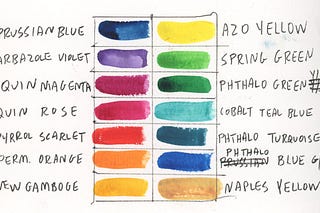 PRUSSIAN BLUE
AZO YELLOW
ARBAZOLE VIOLET
SPRING GREEN
QUIN MAGENTA
PHTHALO GREEN
QUIN ROSE
COBALT TEAL BLUE
YRROL SCARLET
PHTHALO TURQUOISE
PERM. ORANGE
PHTHALO
PRUSSIAN BLUE G
NEW GAMBOGE
NAPLES YELLOW